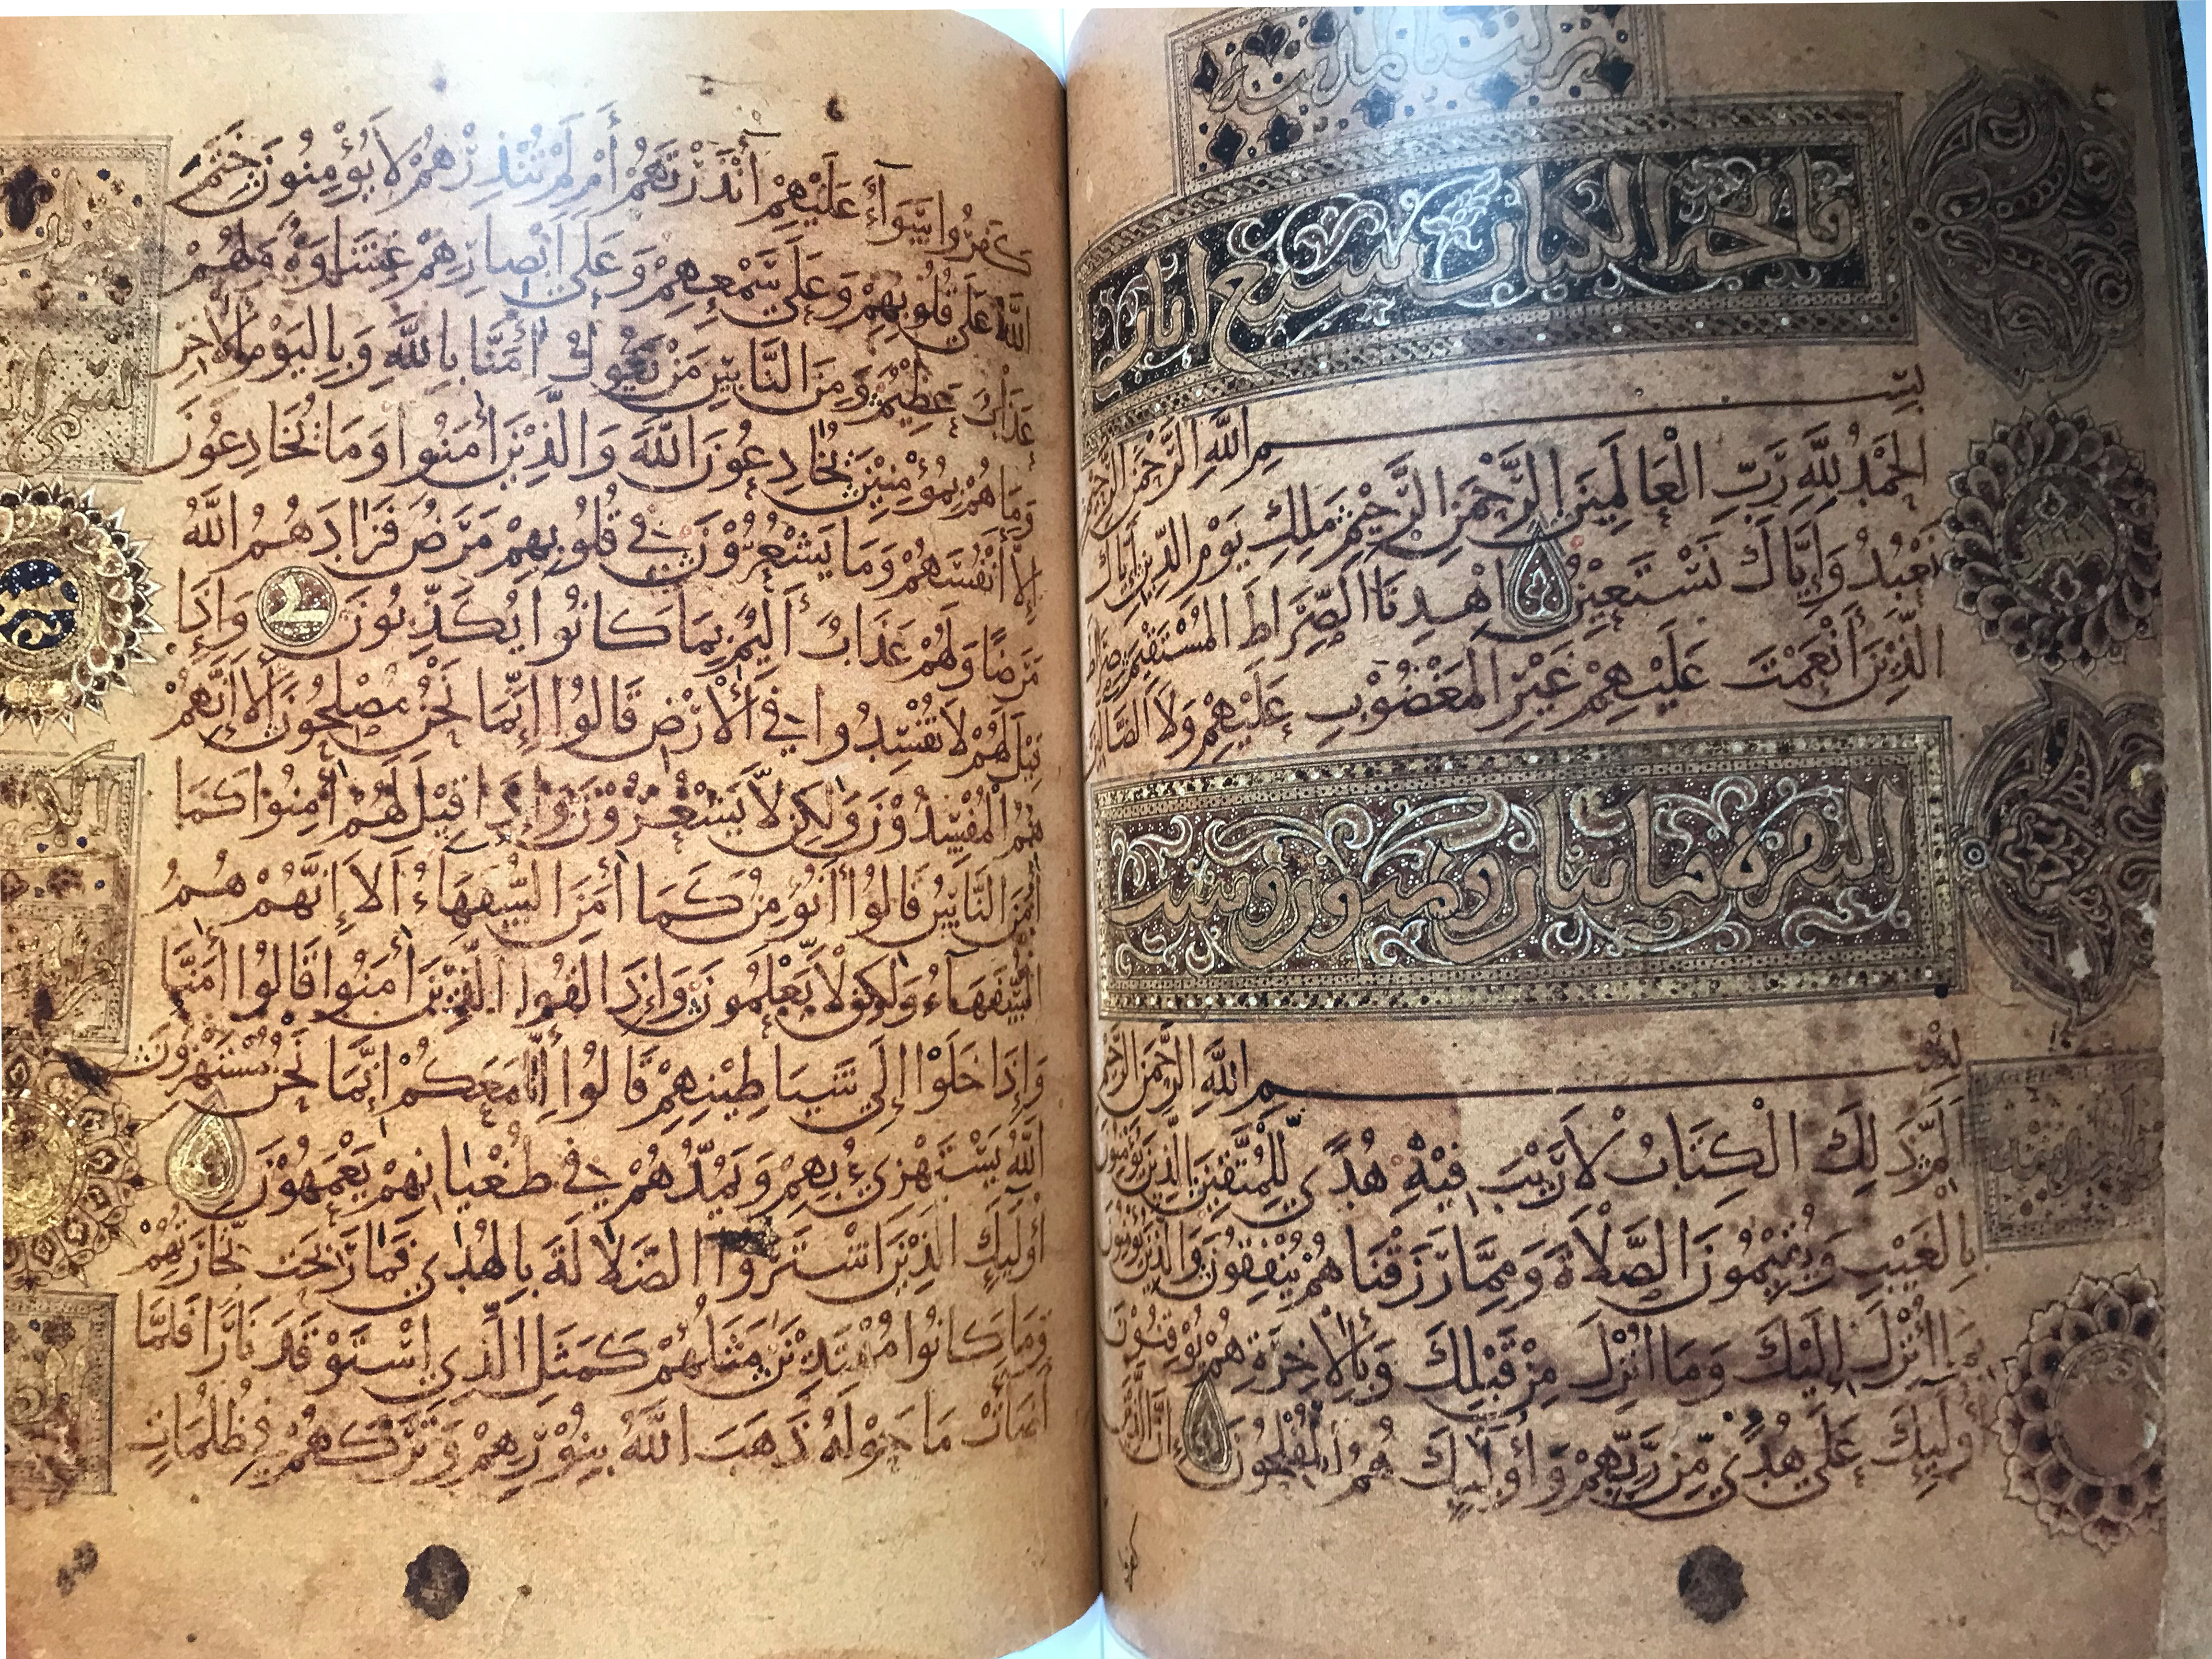 فاتحة الكتاب سبع ايات
بسم الله الرحمن الرحيم
الحمد لله رب العالمين الرحمن الرحيم ملك يوم الدين إياك
نعبد وإياك نستعين اهدنا الصراط المستقيم صراط
الذين أنعمت عليهم غير المغضوب عليهم ولا الضالين
البقرة مايتان وثمنون وست
بسم الله الرحمن الرحيم
الم ذلك الكتاب لا ريب فيه هدى للمتقين الذين يؤمنون
بالغيب ويقيمون الصلاة ومما رزقناهم ينفقون والذين يؤمنون
بما أنزل إليك وما أنزل من قبلك وبالاخرة هم يوقنون
أوليك على هدى من ربهم وأوليك هم المفلحون إن الذين
كفروا
كفروا سوآء عليهم أأنذرتهم أم لم تنذرهم لا يؤمنون ختم
الله على قلوبهم وعلى سمعهم وعلى ابصارهم غشاوة ولهم
عذاب عظيم ومن الناس من يقول أمنا بالله وباليوم الاخر
وما هم بمؤمنين يخادعون الله والذين أمنوا وما يخادعون
إلا أنفسهم وما يشعرون في قلوبهم مرض فزادهم الله
مرضا ولهم عذاب أليم بما كانوا يكذبون وإذا
قيل لهم لا تفسدوا في الأرض قالوا إنما نحن مصلحون ألا إنهم
هم المفسدون ولكن لا يشعرون وإذا قيل لهم أمنوا كما
أمن الناس قالوا أنؤمن كما أمن السفهاء ألا إنهم هم
السفهآء ولكن لا يعلمون وإذا لقوا الذين أمنوا قالوا أمنا
وإذا خلوا إلى شياطينهم قالوا إنا معكم إنما نحن مستهزون
الله يستهزئ بهم ويمدهم في طغيانهم يعمهون
أوليك الذين اشتروا الضلالة بالهدى فما ربحت تجارتهم
وما كانوا مهتدين مثلهم كمثل الذي استوقد نارا فلما
أضات ما حوله ذهب الله بنورهم وتركهم في ظلمات